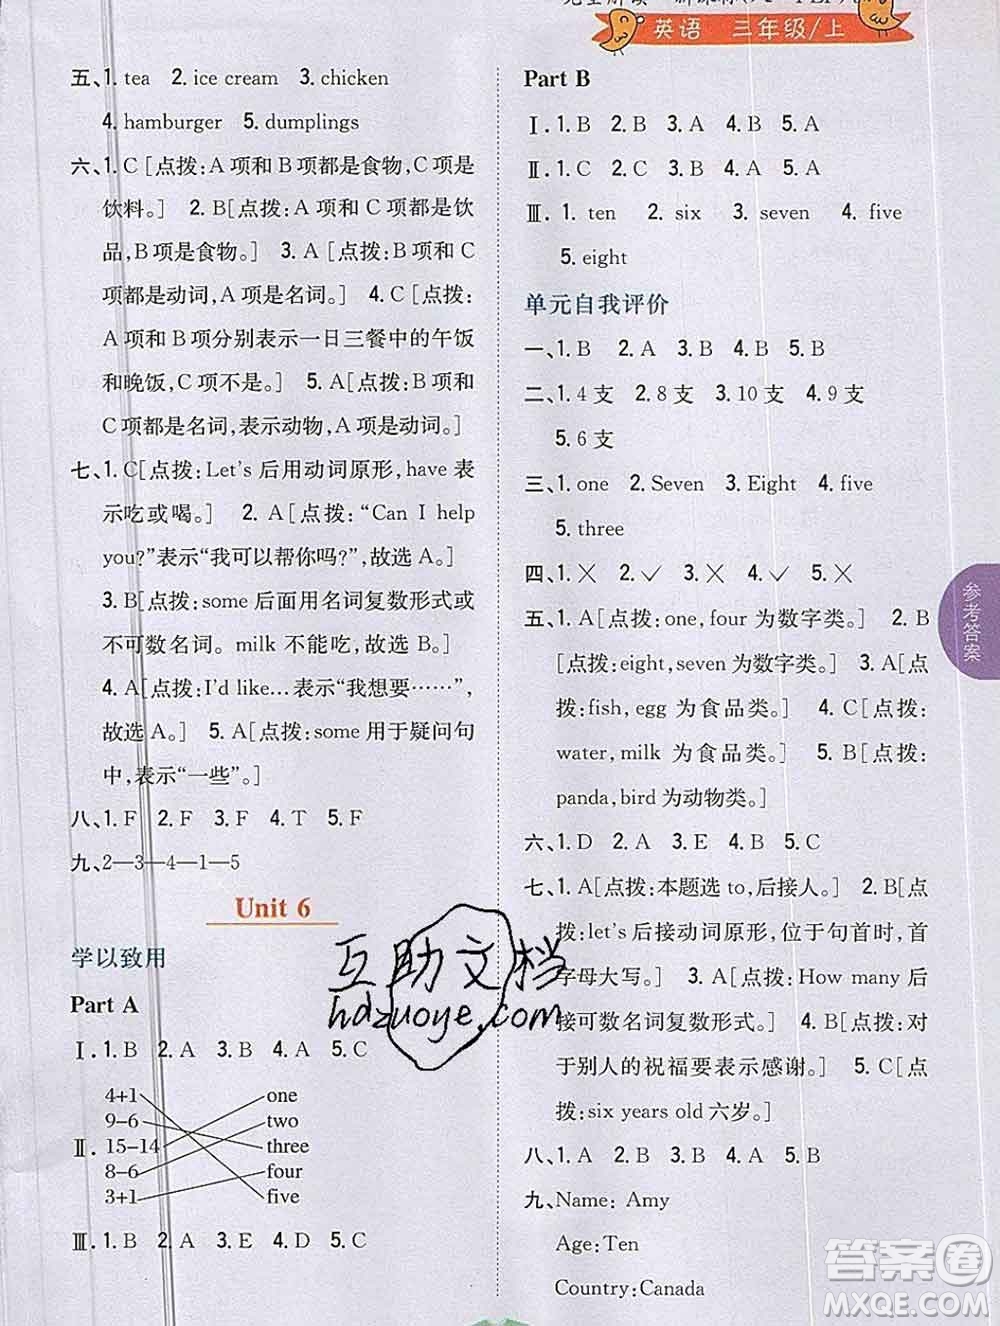 英语 三年级/上
五、1. tea 2. ice cream 3. chicken
4. hamburger 5. dumplings
六、1. C[点拨:A 项和 B 项都是食物,C 项是
饮料。] 2. B[点拨:A 项和 C 项都是饮
品,B 项是食物。] 3. A[点拨:B 项和 C
项都是动词,A 项是名词。] 4. C[点拨:
A 项和 B 项分别表示一日三餐中的午饭
和晚饭,C 项不是。] 5. A[点拨:B 项和
C 项都是名词,表示动物,A 项是动词。]
七、1. C[点拨:Let's 后用动词原形,have 表
示吃或喝。] 2. A[点拨:“Can I help
you?”表示“我可以帮你吗?”,故选 A。]
3. B[点拨:some 后面用名词复数形式或
不可数名词。milk 不能吃,故选 B。]
4. A[点拨:I'd like…表示“我想要……”,
故选A。] 5. A[点拨:some 用于疑问句
中,表示“一些”。]
八、1. F 2. F 3. F 4. T 5. F
九、2—3—4—1—5
Unit 6
学以致用
Part A
Ⅰ. 1. B 2. A 3. B 4. A 5. C
4+1 one
9-6 two
Ⅱ. 15-14 three
8-6 four
3+1 five
Ⅲ. 1. B 2. A 3. E 4. D 5. C
Part B
Ⅰ. 1. B 2. B 3. A 4. B 5. A
Ⅱ. 1. C 2. B 3. A 4. B 5. A
Ⅲ. 1. ten 2. six 3. seven 4. five
5. eight
单元自我评价
一、1. B 2. A 3. B 4. B 5. B
二、1. 4 支 2. 8 支 3. 10 支 4. 9 支
5. 6 支
三、1. one 2. Seven 3. Eight 4. five
5. three
四、1. × 2. √ 3. × 4. √ 5. ×
五、1. A[点拨:one, four 为数字类。] 2. B
[点拨:eight, seven 为数字类。] 3. A[点
拨:fish, egg 为食品类。] 4. C[点拨:
water, milk 为食品类。] 5. B[点拨:
panda, bird 为动物类。]
六、1. D 2. A 3. E 4. B 5. C
七、1. A[点拨:本题选 to,后接人。] 2. B[点
拨:let's 后接动词原形,位于句首时,首
字母大写。] 3. A[点拨:How many 后
接可数名词复数形式。] 4. B[点拨:对
于别人的祝福要表示感谢。] 5. C[点
拨:six years old 六岁。]
八、1. A 2. B 3. B 4. A 5. B
九、Name: Amy
Age: Ten
Country: Canada
参考答案
互助文档
hdzuoye.com
答案圈
MXQE.COM